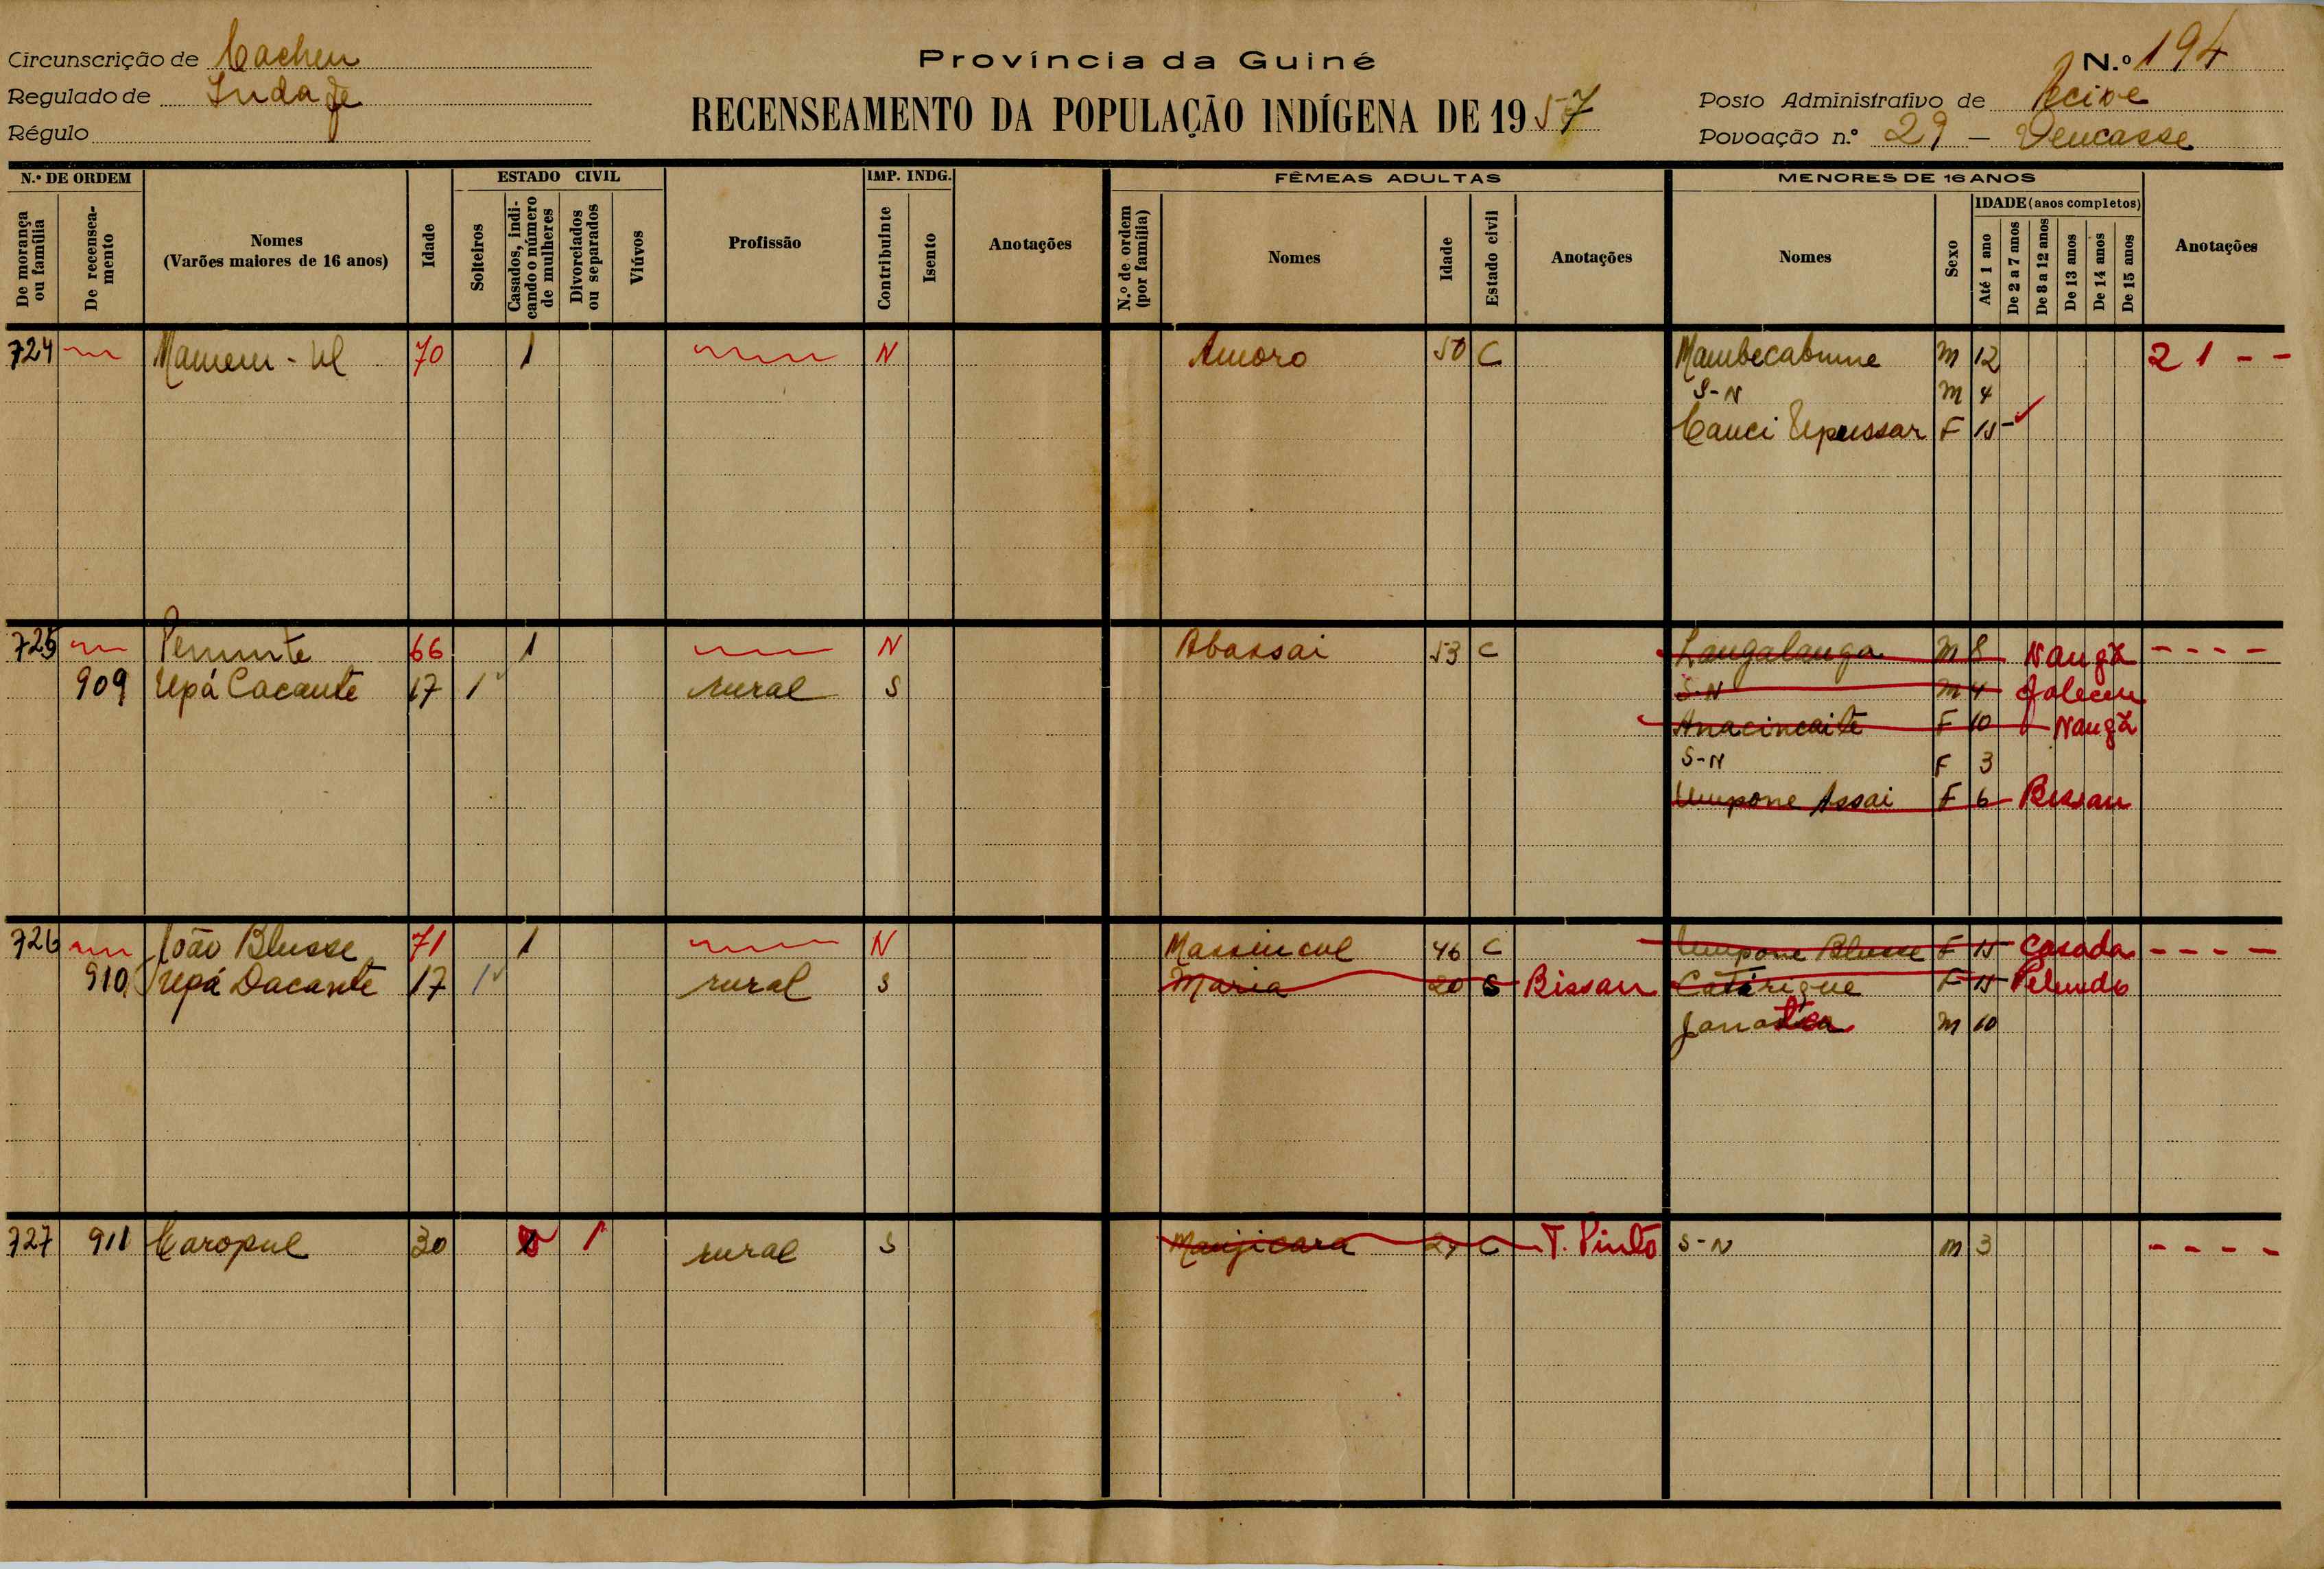 Circunscrição de Cacheu
Regulado de
Régulo
Província da Guiné
RECENSEAMENTO DA POPULAÇÃO INDÍGENA DE 1957
N.º 194
Posto Administrativo de
Povoação n.º 29 –
N.º DE ORDEM
De morança ou família
De recenseamento
Nomes
(Varões maiores de 16 anos)
Idade
ESTADO CIVIL
Solteiros
Casados, indicando o número de mulheres
Divorciados ou separados
Viúvos
Profissão
IMP. INDG.
Contribuinte
Isento
Anotações
FÊMEAS ADULTAS
N.º de ordem (por família)
Nomes
Idade
Estado civil
Anotações
MENORES DE 16 ANOS
Nomes
Sexo
IDADE (anos completos)
Até 1 ano
De 2 a 7 anos
De 8 a 12 anos
De 13 anos
De 14 anos
De 15 anos
Anotações
724 70 1 N Amoro 50 C Mambecabume M 12 2 1 - -
S-N M 4
F 15
725 66 1 N Abassai 53 C Langalanga M 8 - - - -
909 Upá Cacante 17 1 rural S S-N M 4
Anacincaite F 10
S-N F 3
Umpone Assai F 6 Bissau
726 João Blusse 71 1 N Massincul 46 C Umpone Blusse F 15 Casada - - - -
910 Upá Dacante 17 1 rural S Maria 20 S Bissau Catérigue F 15 Pelundo
M 10
727 911 Caropul 30 1 rural S Manjicara C T. Pinto S-N M 3 - - - -